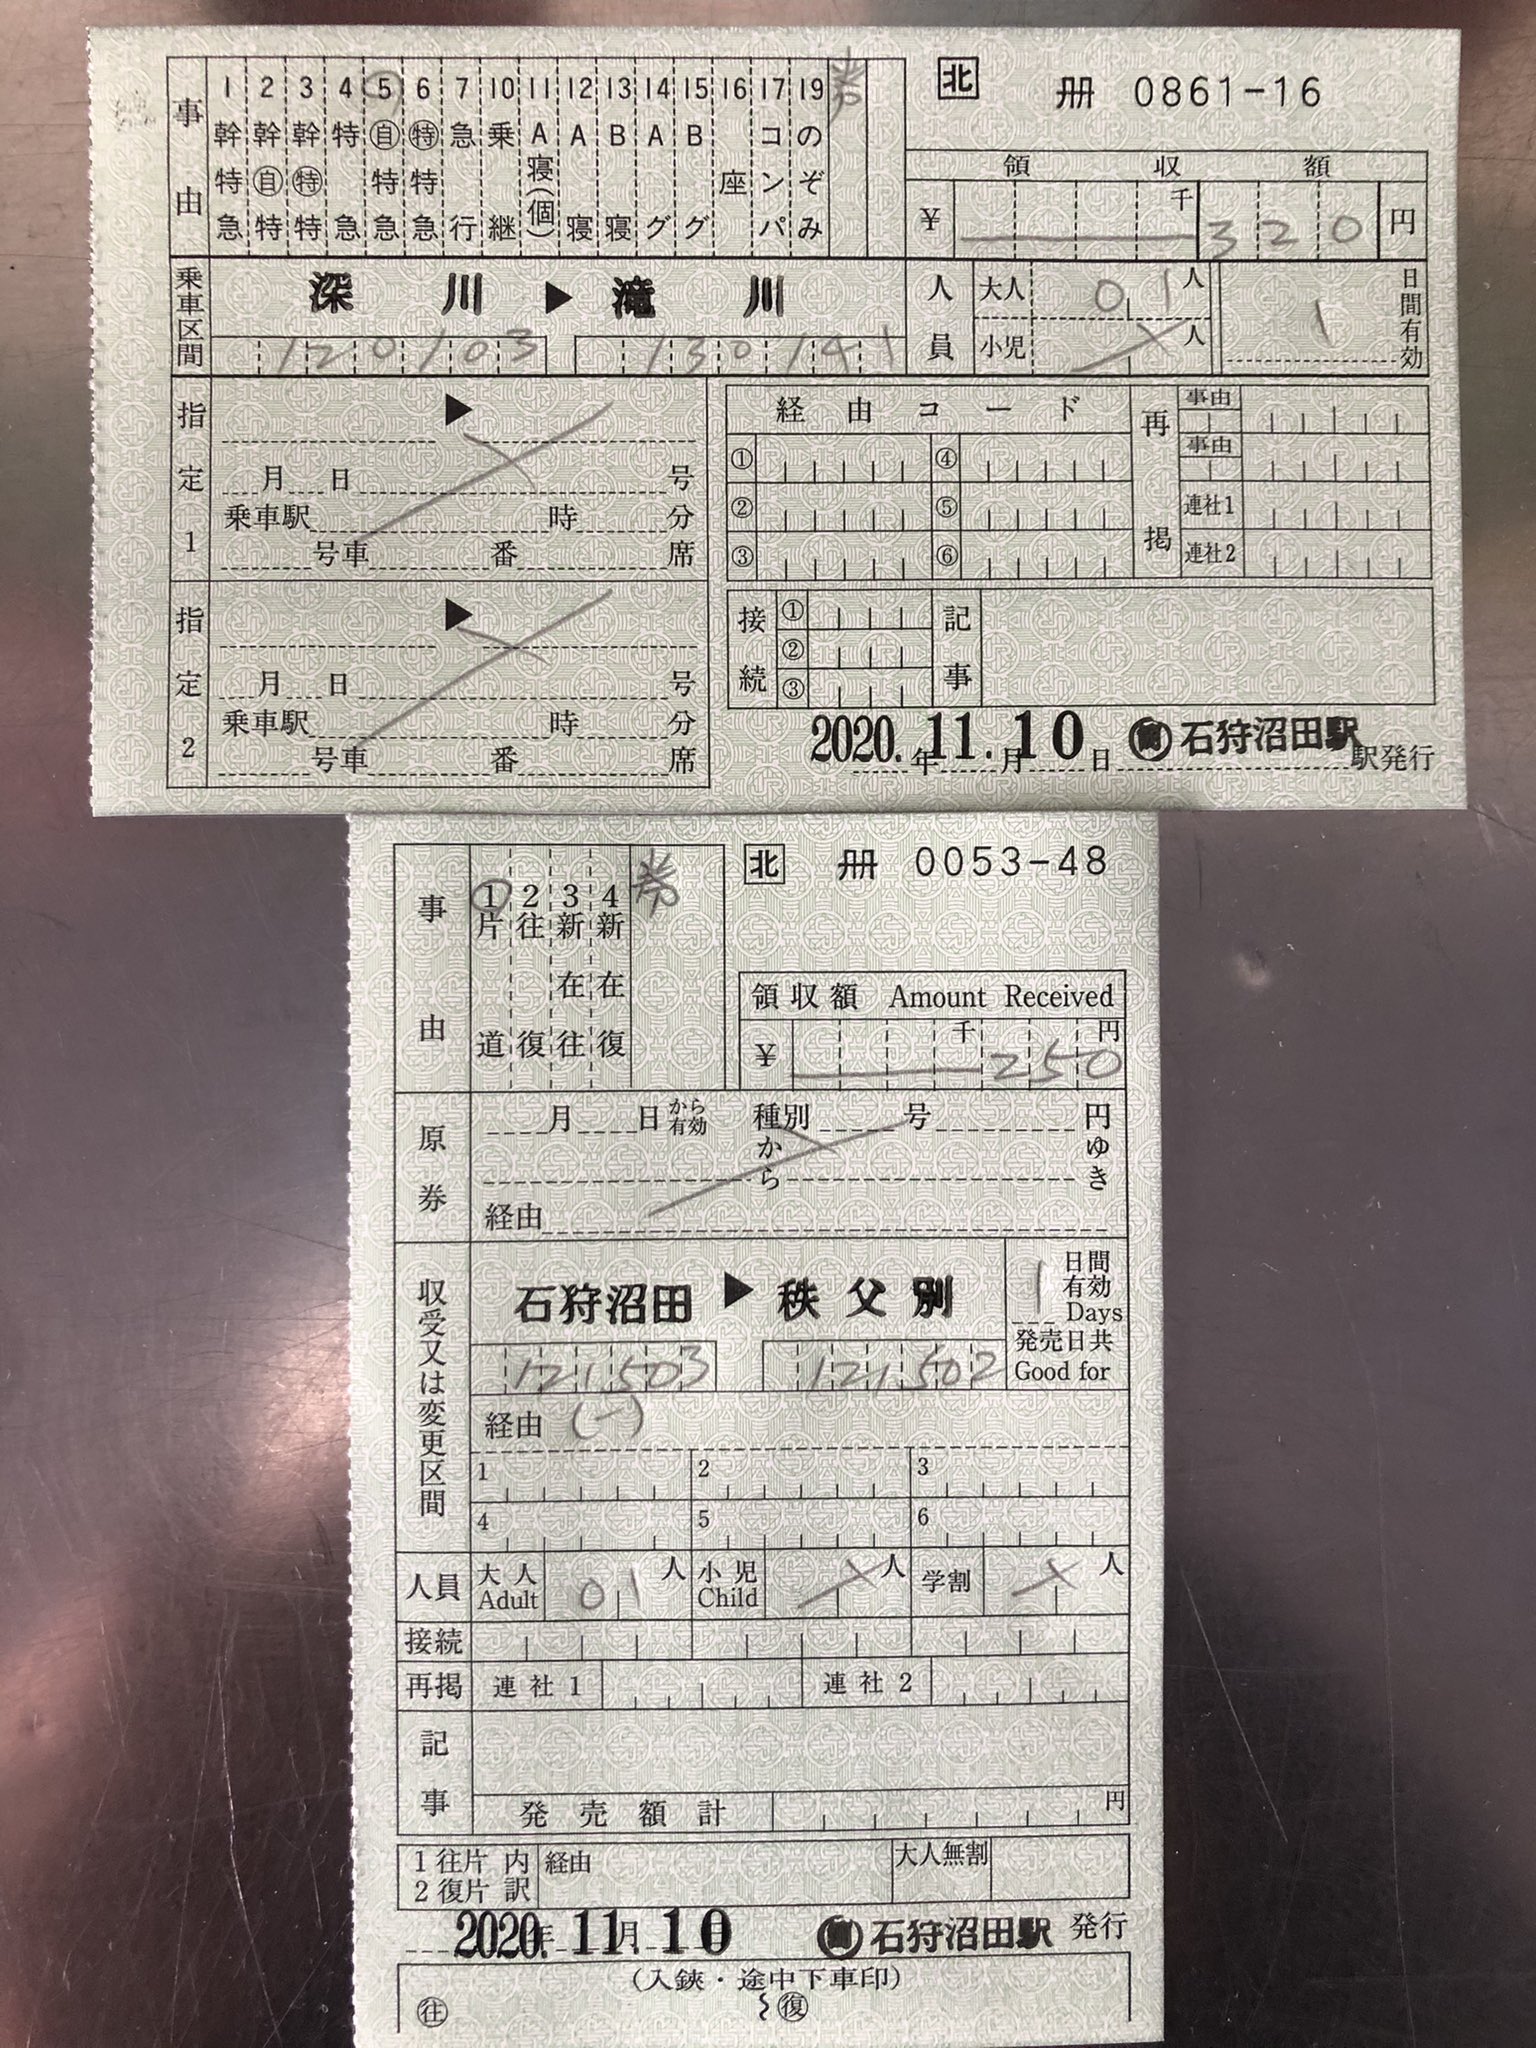 事由
1 幹特急
2 幹㊂特
3 幹㊕特
4 特急
5 自特急
6 特特急
7 急行
10 乗継
11 A寝(個)
12 A寝
13 B寝
14 Aグ
15 Bグ
16 座
17 コンパ
19 のぞみ
券
北 冊 0861-16
領収額
¥ 千 320 円
乗車区間
深川 ▶ 滝川
120103 130141
人員
大人 01人
小児 人
1 日間有効
指定1
▶
月 日 号
乗車駅 時 分
号車 番 席
指定2
▶
月 日 号
乗車駅 時 分
号車 番 席
経由コード
① ④
② ⑤
③ ⑥
再掲
事由
事由
連社1
連社2
接続
①
②
③
記事
2020.年11.月10日 石狩沼田駅 駅発行
事由
1 片道
2 往復
3 新在往
4 新在復
券
北 冊 0053-48
領収額 Amount Received
¥ 千 250 円
原券
月 日 から有効 種別 号 円
から ゆき
経由
収受又は変更区間
石狩沼田 ▶ 秩父別
121503 121502
1 日間有効 Days
発売日共 Good for
経由 (一)
1 2 3
4 5 6
人員 大人 Adult 01人 小児 Child 人 学割 人
接続
再掲 連社1 連社2
記事
発売額計 円
1往片 内訳 経由 大人無割
2復片
2020.年11月10 石狩沼田駅 発行
(入鋏・途中下車印)
往 復